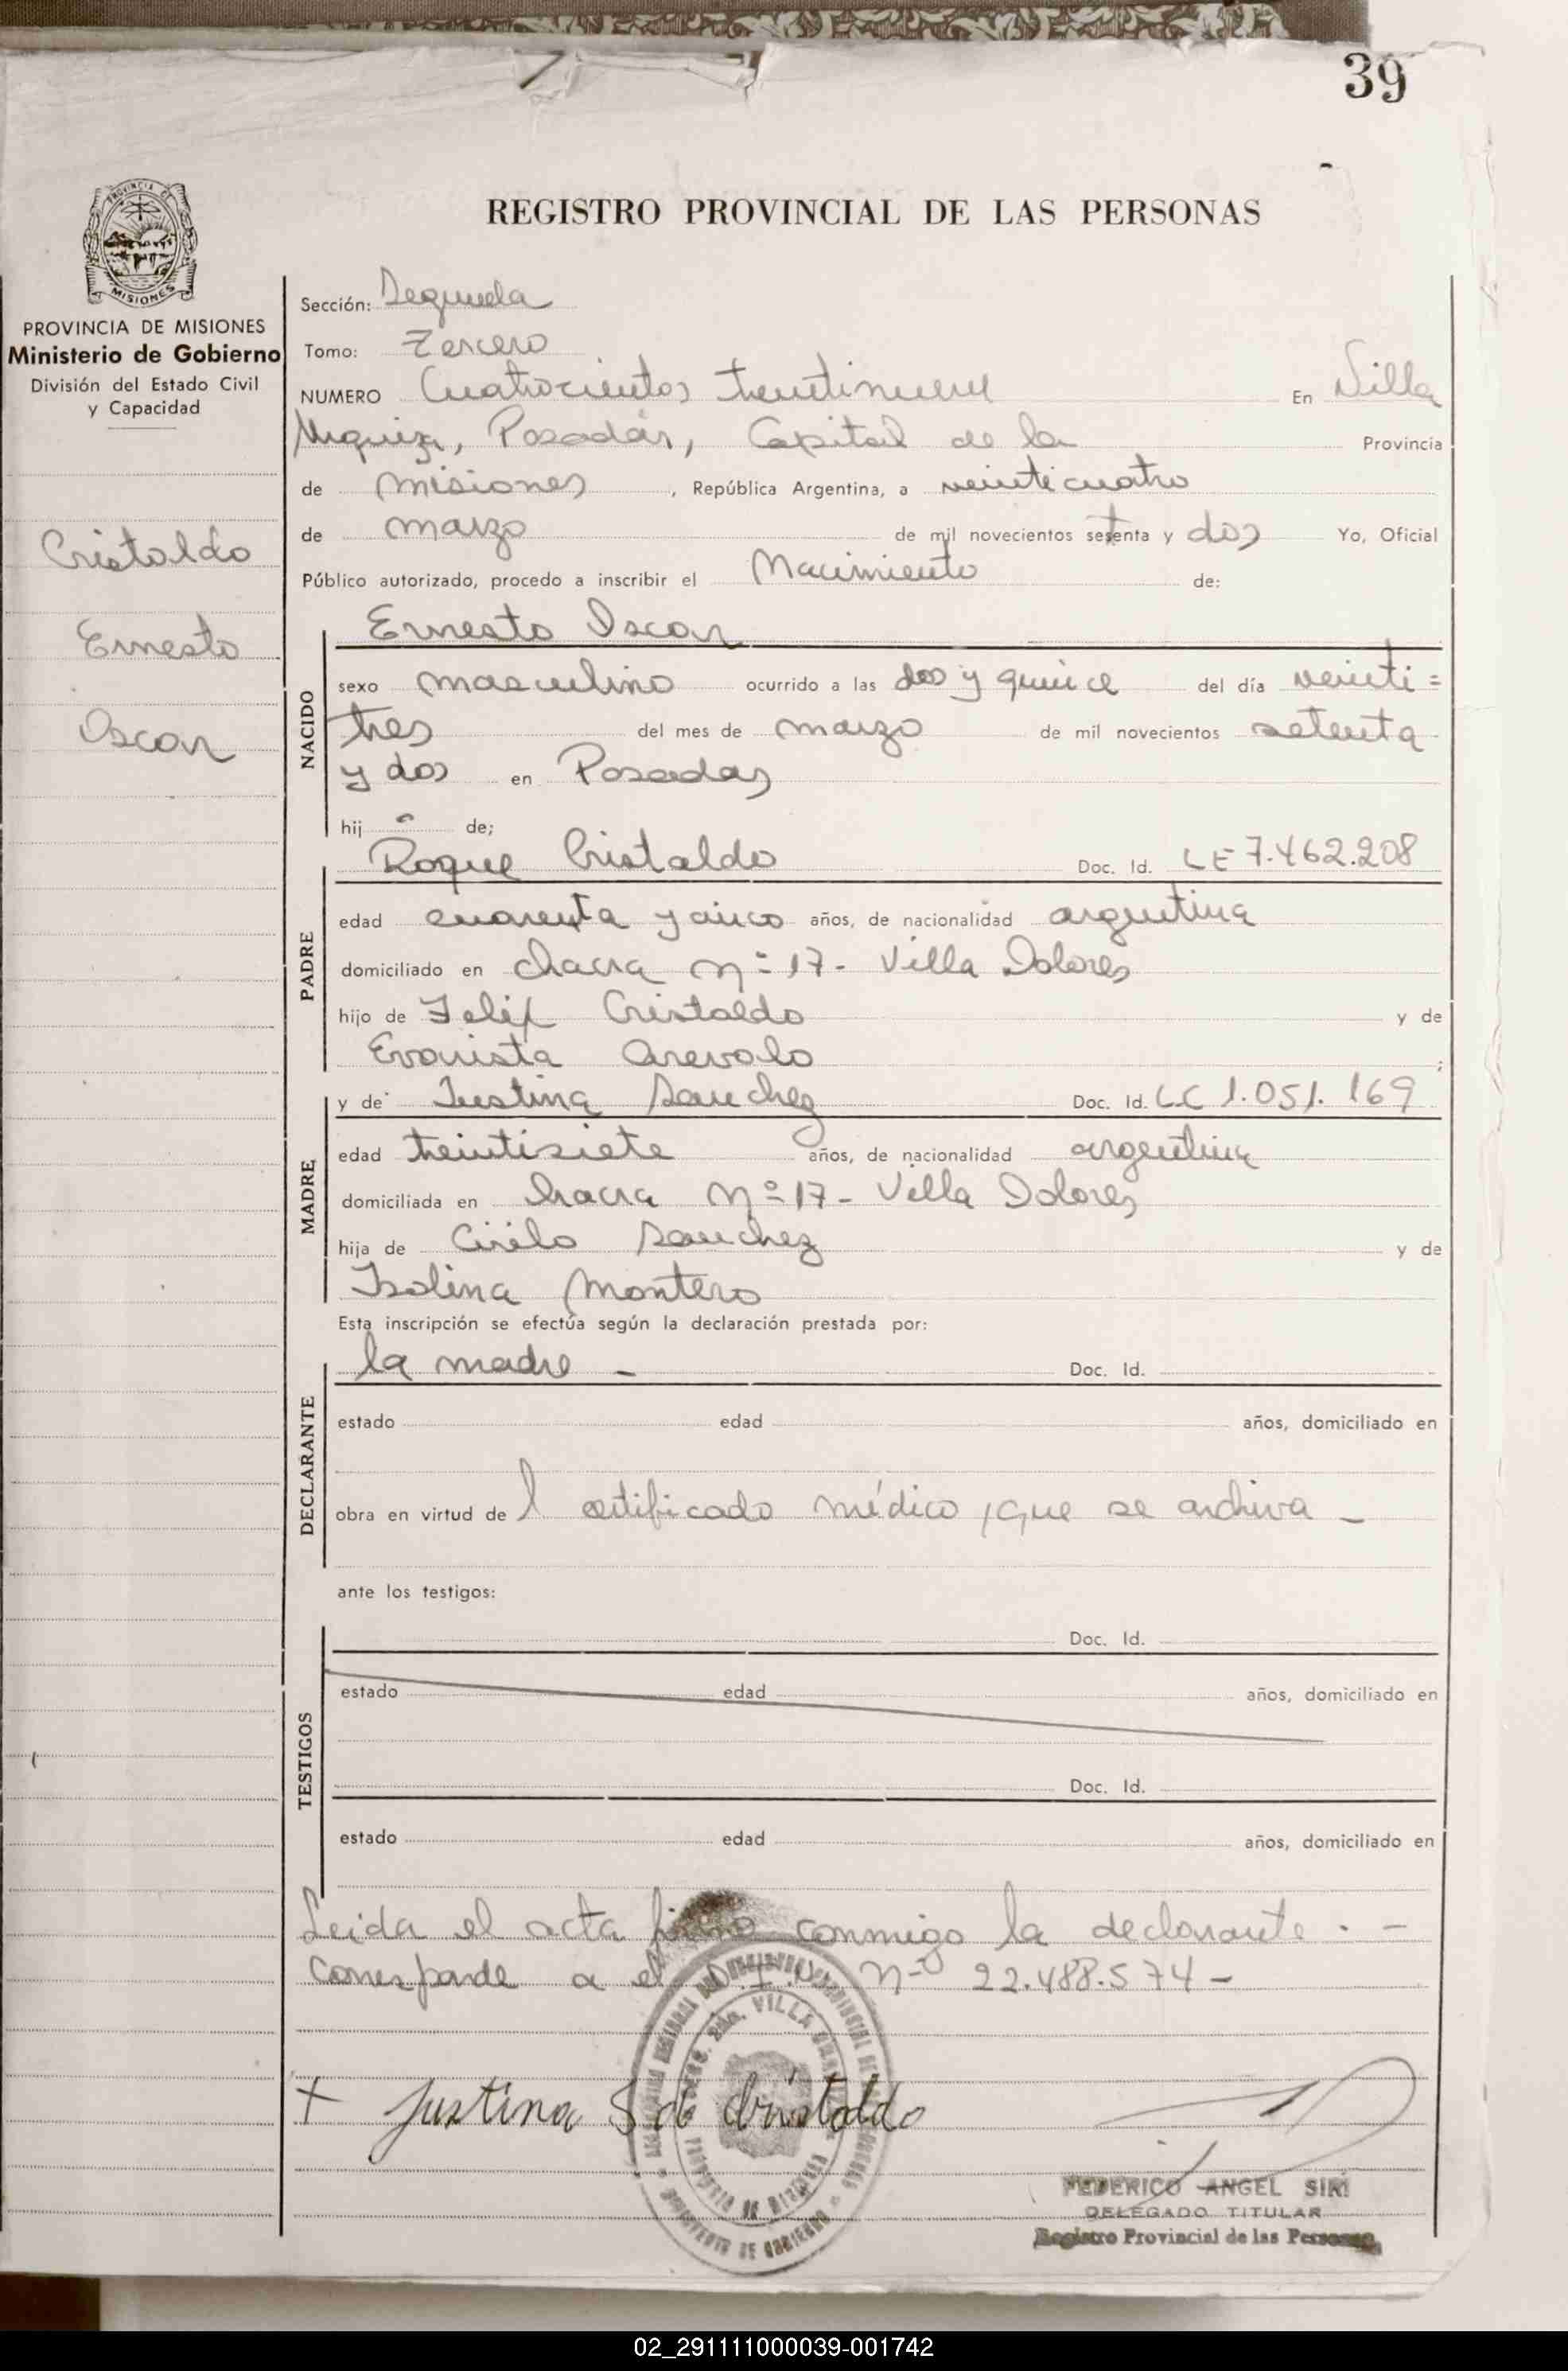 39
REGISTRO PROVINCIAL DE LAS PERSONAS
PROVINCIA DE MISIONES
Ministerio de Gobierno
División del Estado Civil
y Capacidad
Cristaldo
Ernesto
Oscar
Sección: Segunda
Tomo: Tercero
NUMERO Cuatrocientos treintinueve En Villa
Urquiza, Posadas, Capital de la Provincia
de Misiones, República Argentina, a veinticuatro
de marzo de mil novecientos setenta y dos Yo, Oficial
Público autorizado, procedo a inscribir el Nacimiento de:
Ernesto Oscar
NACIDO
sexo masculino ocurrido a las dos y quince del día veinti=
tres del mes de marzo de mil novecientos setenta
y dos en Posadas
hij o de;
Roque Cristaldo Doc. Id. LE 7.462.208
PADRE
edad cuarenta y cinco años, de nacionalidad argentina
domiciliado en chacra nº 17- Villa Dolores
hijo de Felix Cristaldo y de
Evarista Arevalo;
y de Justina Sanchez Doc. Id. LC 1.051.169
MADRE
edad treintisiete años, de nacionalidad argentina
domiciliada en chacra Nº 17- Villa Dolores
hija de Cirilo Sanchez y de
Isolina Montero
Esta inscripción se efectúa según la declaración prestada por:
la madre - Doc. Id.
DECLARANTE
estado edad años, domiciliado en
obra en virtud de l certificado médico, que se archiva -
ante los testigos:
Doc. Id.
TESTIGOS
estado edad años, domiciliado en
Doc. Id.
estado edad años, domiciliado en
Leida el acta firma conmigo la declarante. -
Corresponde a el D.N.I. Nº 22.488.574-
+ Justina S de Cristaldo
FEDERICO ANGEL SIRI
DELEGADO TITULAR
Registro Provincial de las Personas
02_291111000039-001742